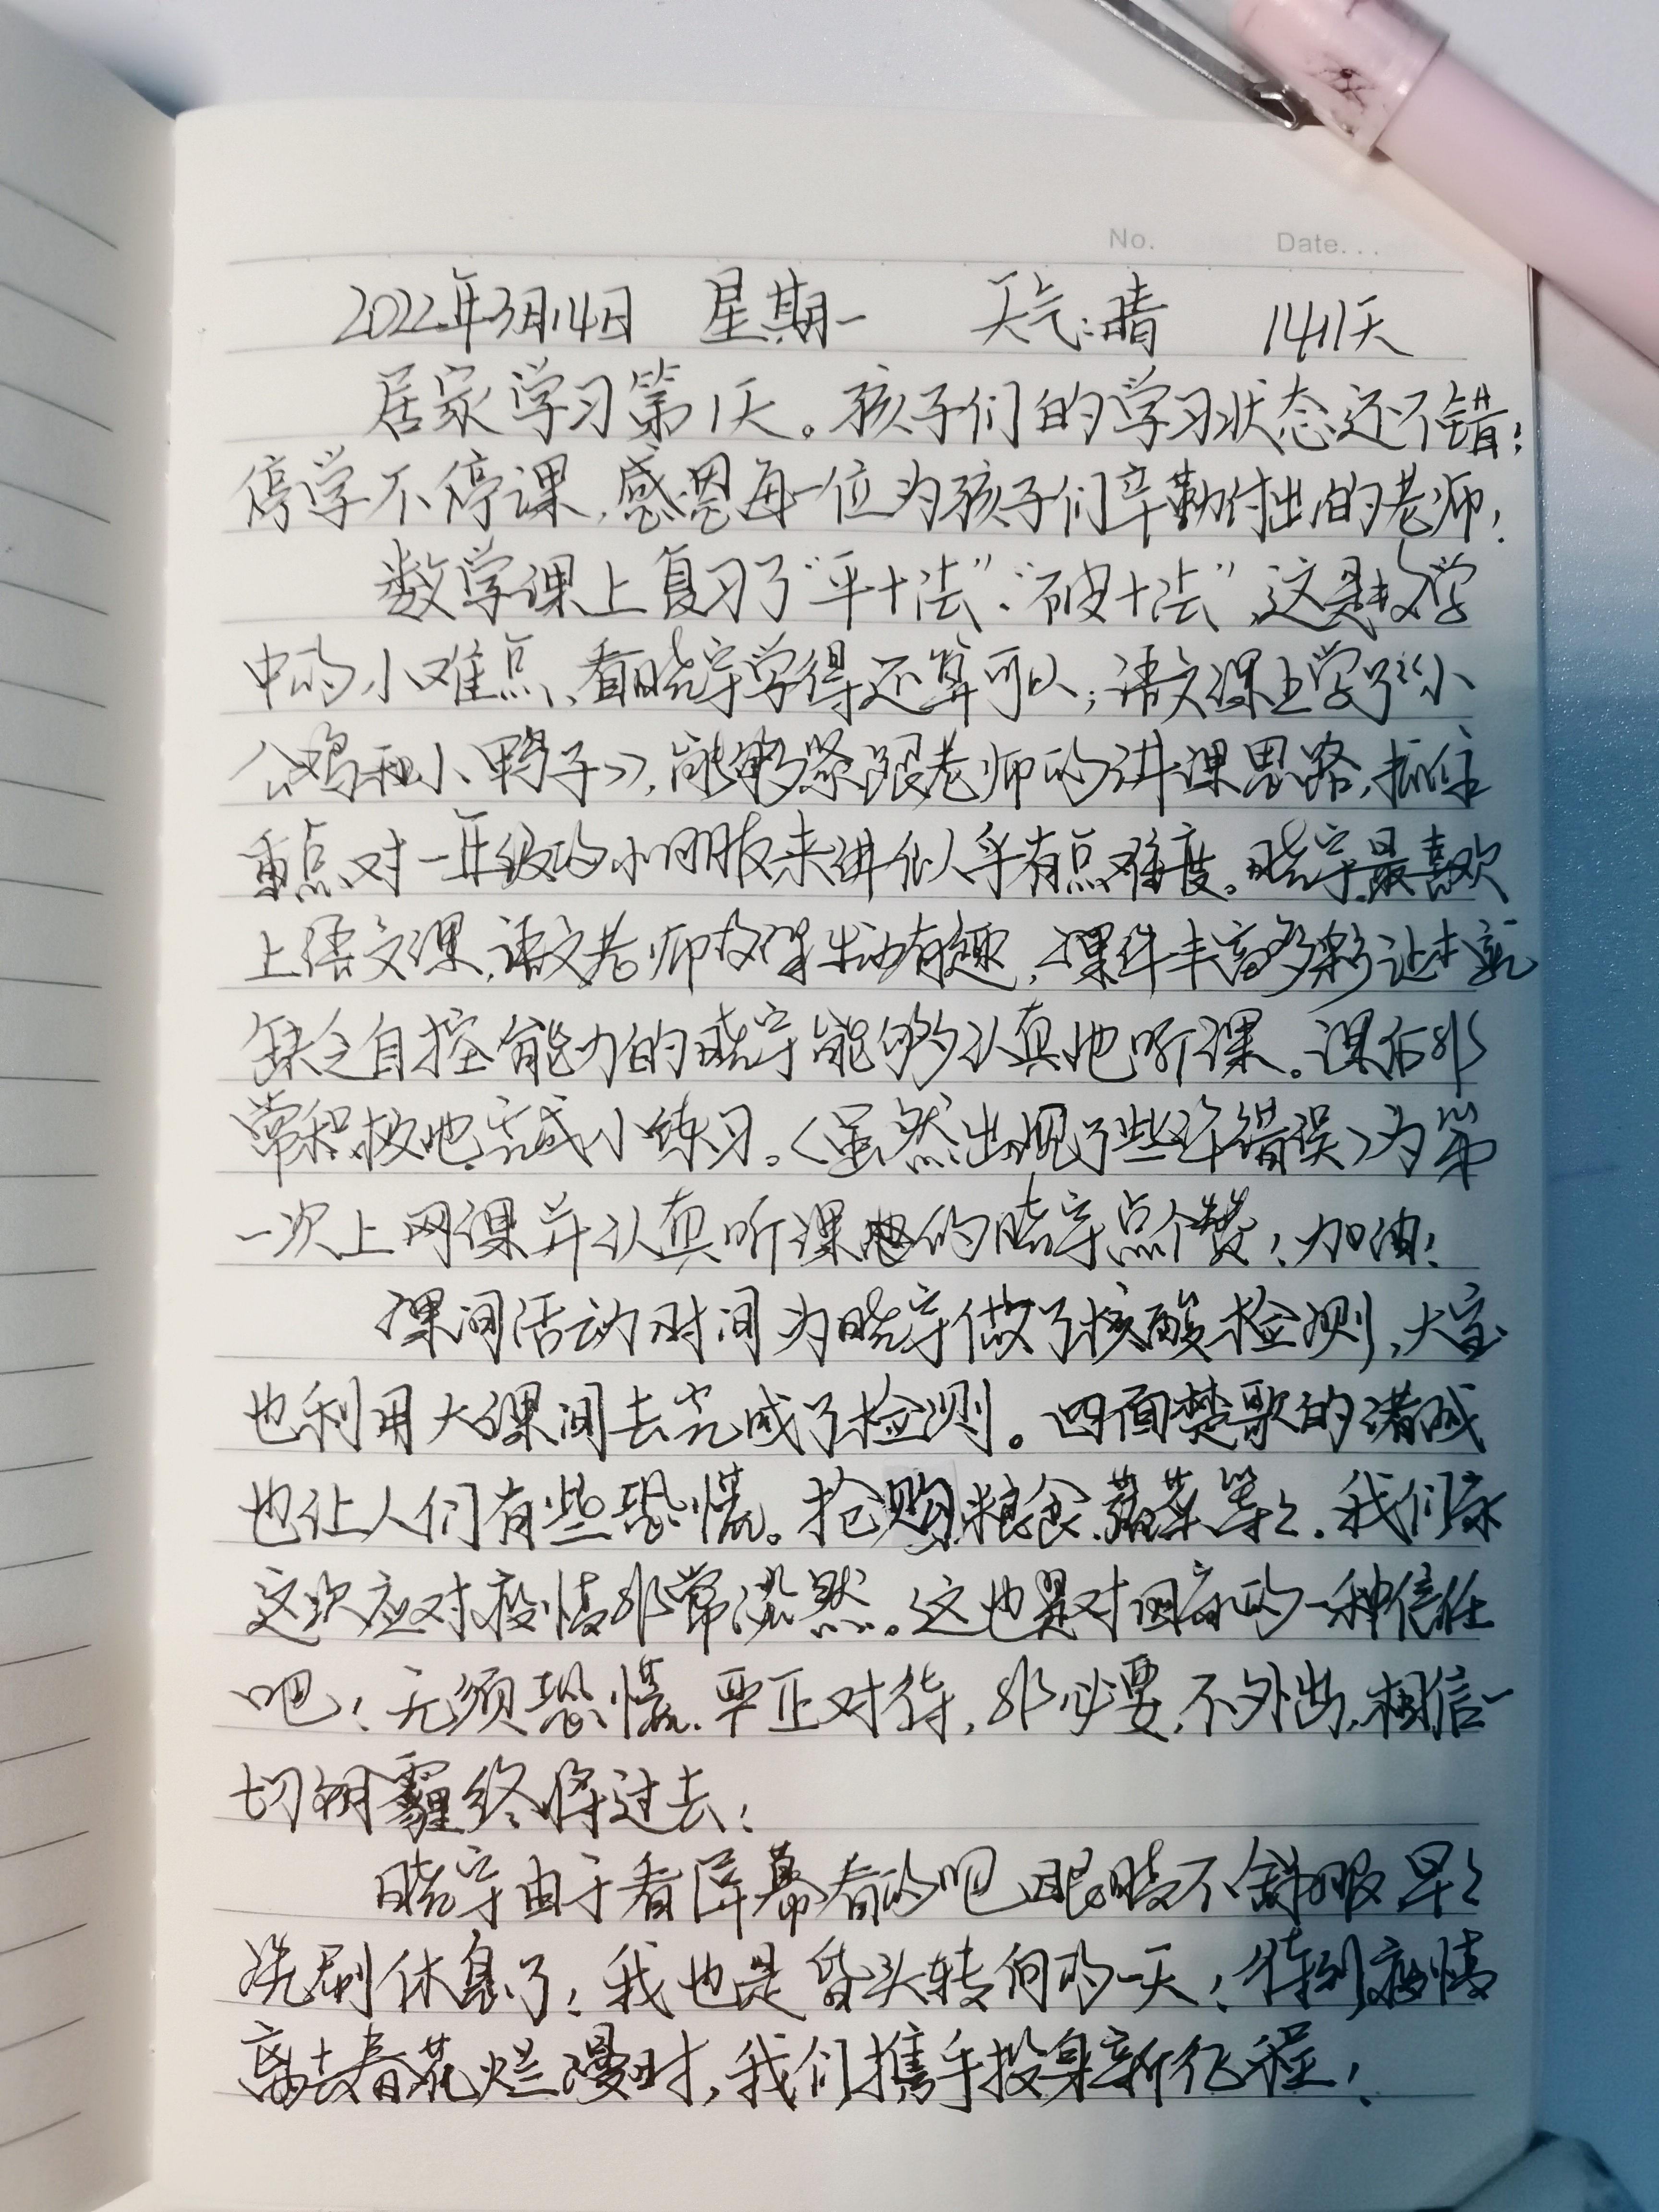 No. Date...
2022年3月14日 星期一 天气:晴 1411天
居家学习第1天。孩子们的学习状态还不错!
停学不停课,感恩每一位为孩子们辛勤付出的老师!
数学课上复习了“平十法”、“破十法”,这是数学
中的小难点、看晓宇学得还算可以;语文课上学了《小
公鸡和小鸭子》,能够紧跟老师的讲课思路,抓住
重点对一年级的小朋友来讲似乎有点难度。晓宇最喜欢
上语文课,语文老师教课生动有趣,课件丰富多彩让本就
缺乏自控能力的晓宇能够认真地听课。课后非
常积极地完成小练习。(虽然出现了些许错误)为第
一次上网课并认真听课的晓宇点个赞!加油!
课间活动时间为晓宇做了核酸检测,大宝
也利用大课间去完成了检测。四面楚歌的诸城
也让人们有些恐慌。抢购粮食、蔬菜等等。我们家
这次应对疫情非常淡然。这也是对国家的一种信任
吧!无须恐慌,严正对待,非必要,不外出,相信一
切阴霾终将过去!
晓宇由于看屏幕看的吧,眼睛不舒服早早
洗刷休息了!我也是昏头转向的一天!待到疫情
离去春花烂漫时,我们携手投身新征程!